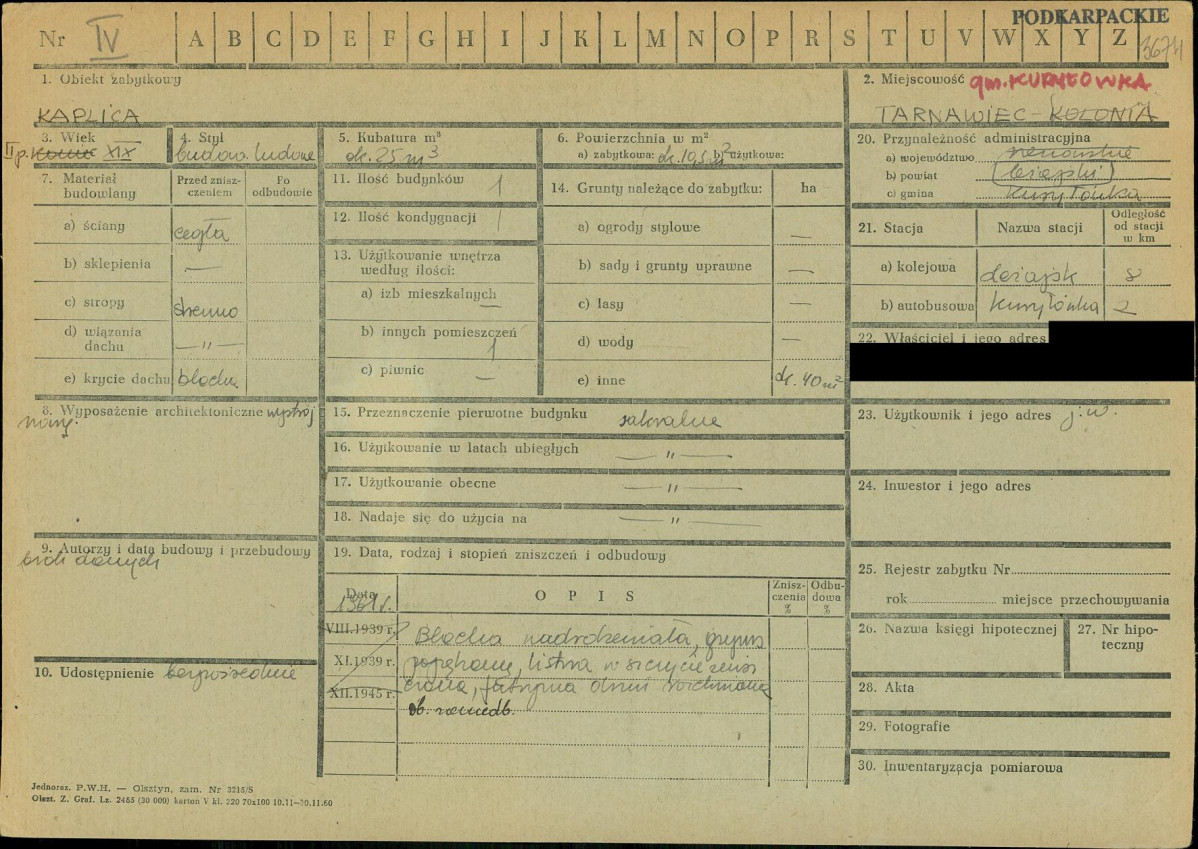 PODKARPACKIE
Nr IV A B C D E F G H I J K L M N O P R S T U V W X Y Z 3674
1. Obiekt zabytkowy
KAPLICA
2. Miejscowość gm. KURYŁÓWKA
TARNAWIEC - KOLONIA
3. Wiek
II p. XIX
4. Styl
budown. ludowe
5. Kubatura m³
ok. 25 m³
6. Powierzchnia w m²
a) zabytkowa: ok. 10,5 m² b) użytkowa:
7. Materiał budowlany
Przed zniszczeniem
Po odbudowie
a) ściany cegła
b) sklepienia —
c) stropy drewno
d) wiązania dachu —"—
e) krycie dachu blacha
8. Wyposażenie architektoniczne wystrój
nowy.
9. Autorzy i data budowy i przebudowy
brak danych
10. Udostępnienie bezpośrednie
11. Ilość budynków 1
12. Ilość kondygnacji 1
13. Użytkowanie wnętrza według ilości:
a) izb mieszkalnych —
b) innych pomieszczeń 1
c) piwnic —
14. Grunty należące do zabytku: ha
a) ogrody stylowe —
b) sady i grunty uprawne —
c) lasy —
d) wody —
e) inne ok. 40 m²
15. Przeznaczenie pierwotne budynku sakralne
16. Użytkowanie w latach ubiegłych —"—
17. Użytkowanie obecne —"—
18. Nadaje się do użycia na —"—
19. Data, rodzaj i stopień zniszczeń i odbudowy
Data
OPIS
Zniszczenia %
Odbudowa %
VIII.1939 r.
XI.1939 r.
XII.1945 r.
Blacha nadrdzewiała, gzyms
popękany, listwa w szczycie
futryna drzwi
ob. zaniedb.
20. Przynależność administracyjna
a) województwo rzeszowskie
b) powiat leżajski
c) gmina Kuryłówka
21. Stacja
Nazwa stacji
Odległość od stacji w km
a) kolejowa Leżajsk 8
b) autobusowa Kuryłówka 2
22. Właściciel i jego adres
23. Użytkownik i jego adres j.w.
24. Inwestor i jego adres
25. Rejestr zabytku Nr
rok miejsce przechowywania
26. Nazwa księgi hipotecznej
27. Nr hipoteczny
28. Akta
29. Fotografie
30. Inwentaryzacja pomiarowa
Jednoraz. P.W.H. — Olsztyn, zam. Nr 3215/S
Olszt. Z. Graf. Lz. 2455 (30 000) karton V kl. 220 70x100 10.11—30.11.60